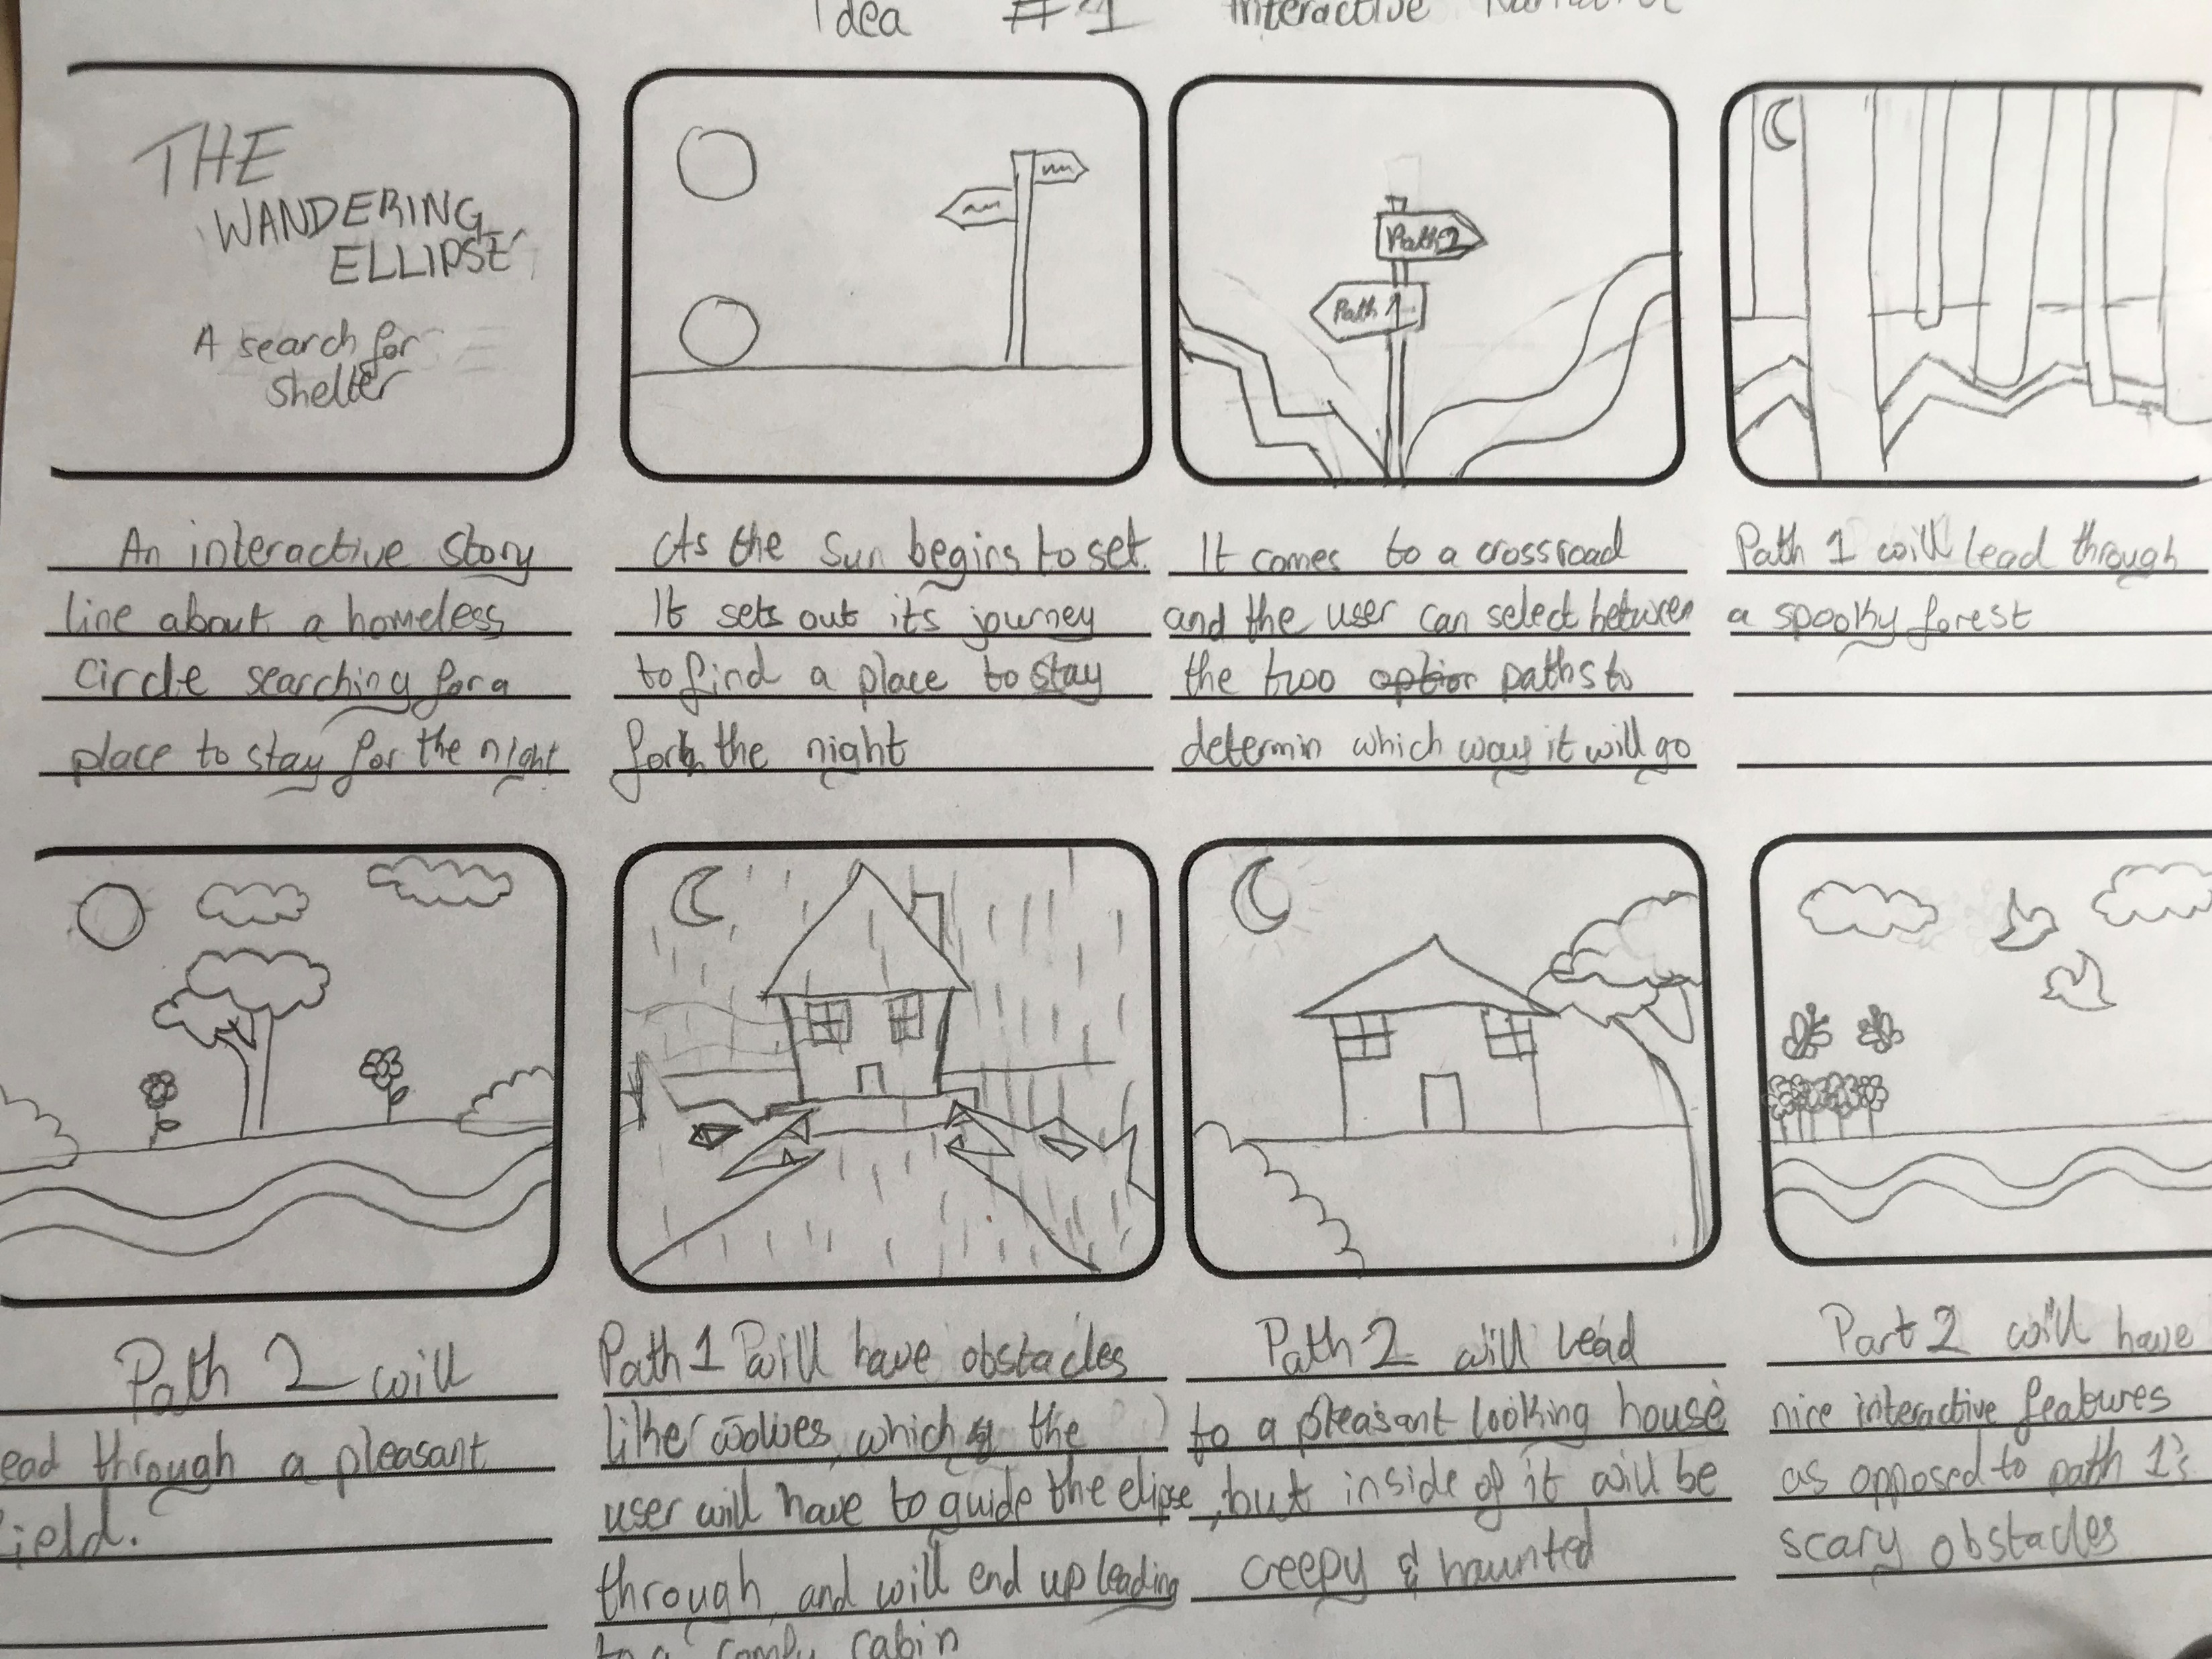 Idea #1 Interactive Narrative
THE
WANDERING
ELLIPSE
A search for
shelter
An interactive story
line about a homeless
circle searching for a
place to stay for the night
As the sun begins to set.
It sets out its journey
to find a place to stay
for the night
Path 2
Path 1
It comes to a crossroad
and the user can select between
the two option paths to
determin which way it will go
Path 1 will lead through
a spooky forest
Path 2 will
ead through a pleasant
ield.
Path 1 will have obstacles
like wolves, which the
user will have to guide the elipse
through, and will end up leading
to a comfy cabin
Path 2 will lead
to a pleasant looking house
, but inside of it will be
creepy & haunted
Part 2 will have
nice interactive features
as opposed to path 1's
scary obstacles